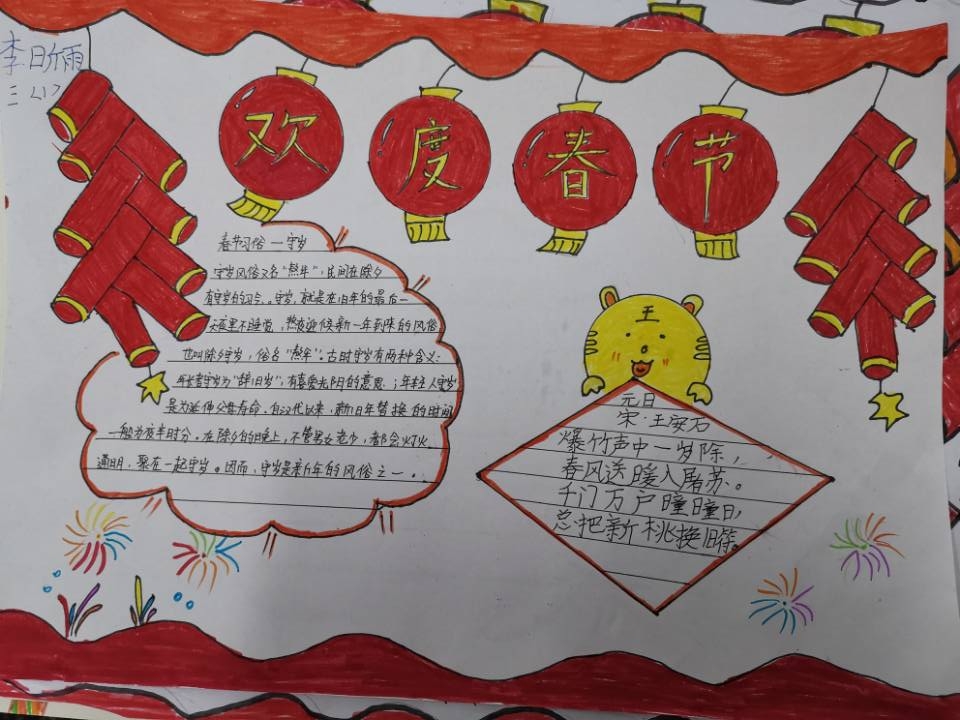 李昕雨
三〈1〉
欢度春节
春节习俗一守岁
守岁风俗又名"熬年",民间在除夕
有守岁的习令。守岁,就是在旧年的最后一
天夜里不睡觉,熬夜迎候新一年到来的风俗,
也叫除夕守岁,俗名"熬年"。古时守岁有两种含义:
年长者守岁为"辞旧岁",有喜爱光阴的意思;年轻人守岁
是为延伸父母寿命。自汉代以来,新旧年替换的时间
一般为夜半时分。在除夕的晚上,不管男女老少,都会灯火
通明,聚在一起守岁。因而,守岁是新年的风俗之一。
王
元日
宋·王安石
爆竹声中一岁除,
春风送暖入屠苏。
千门万户瞳瞳日,
总把新桃换旧符。